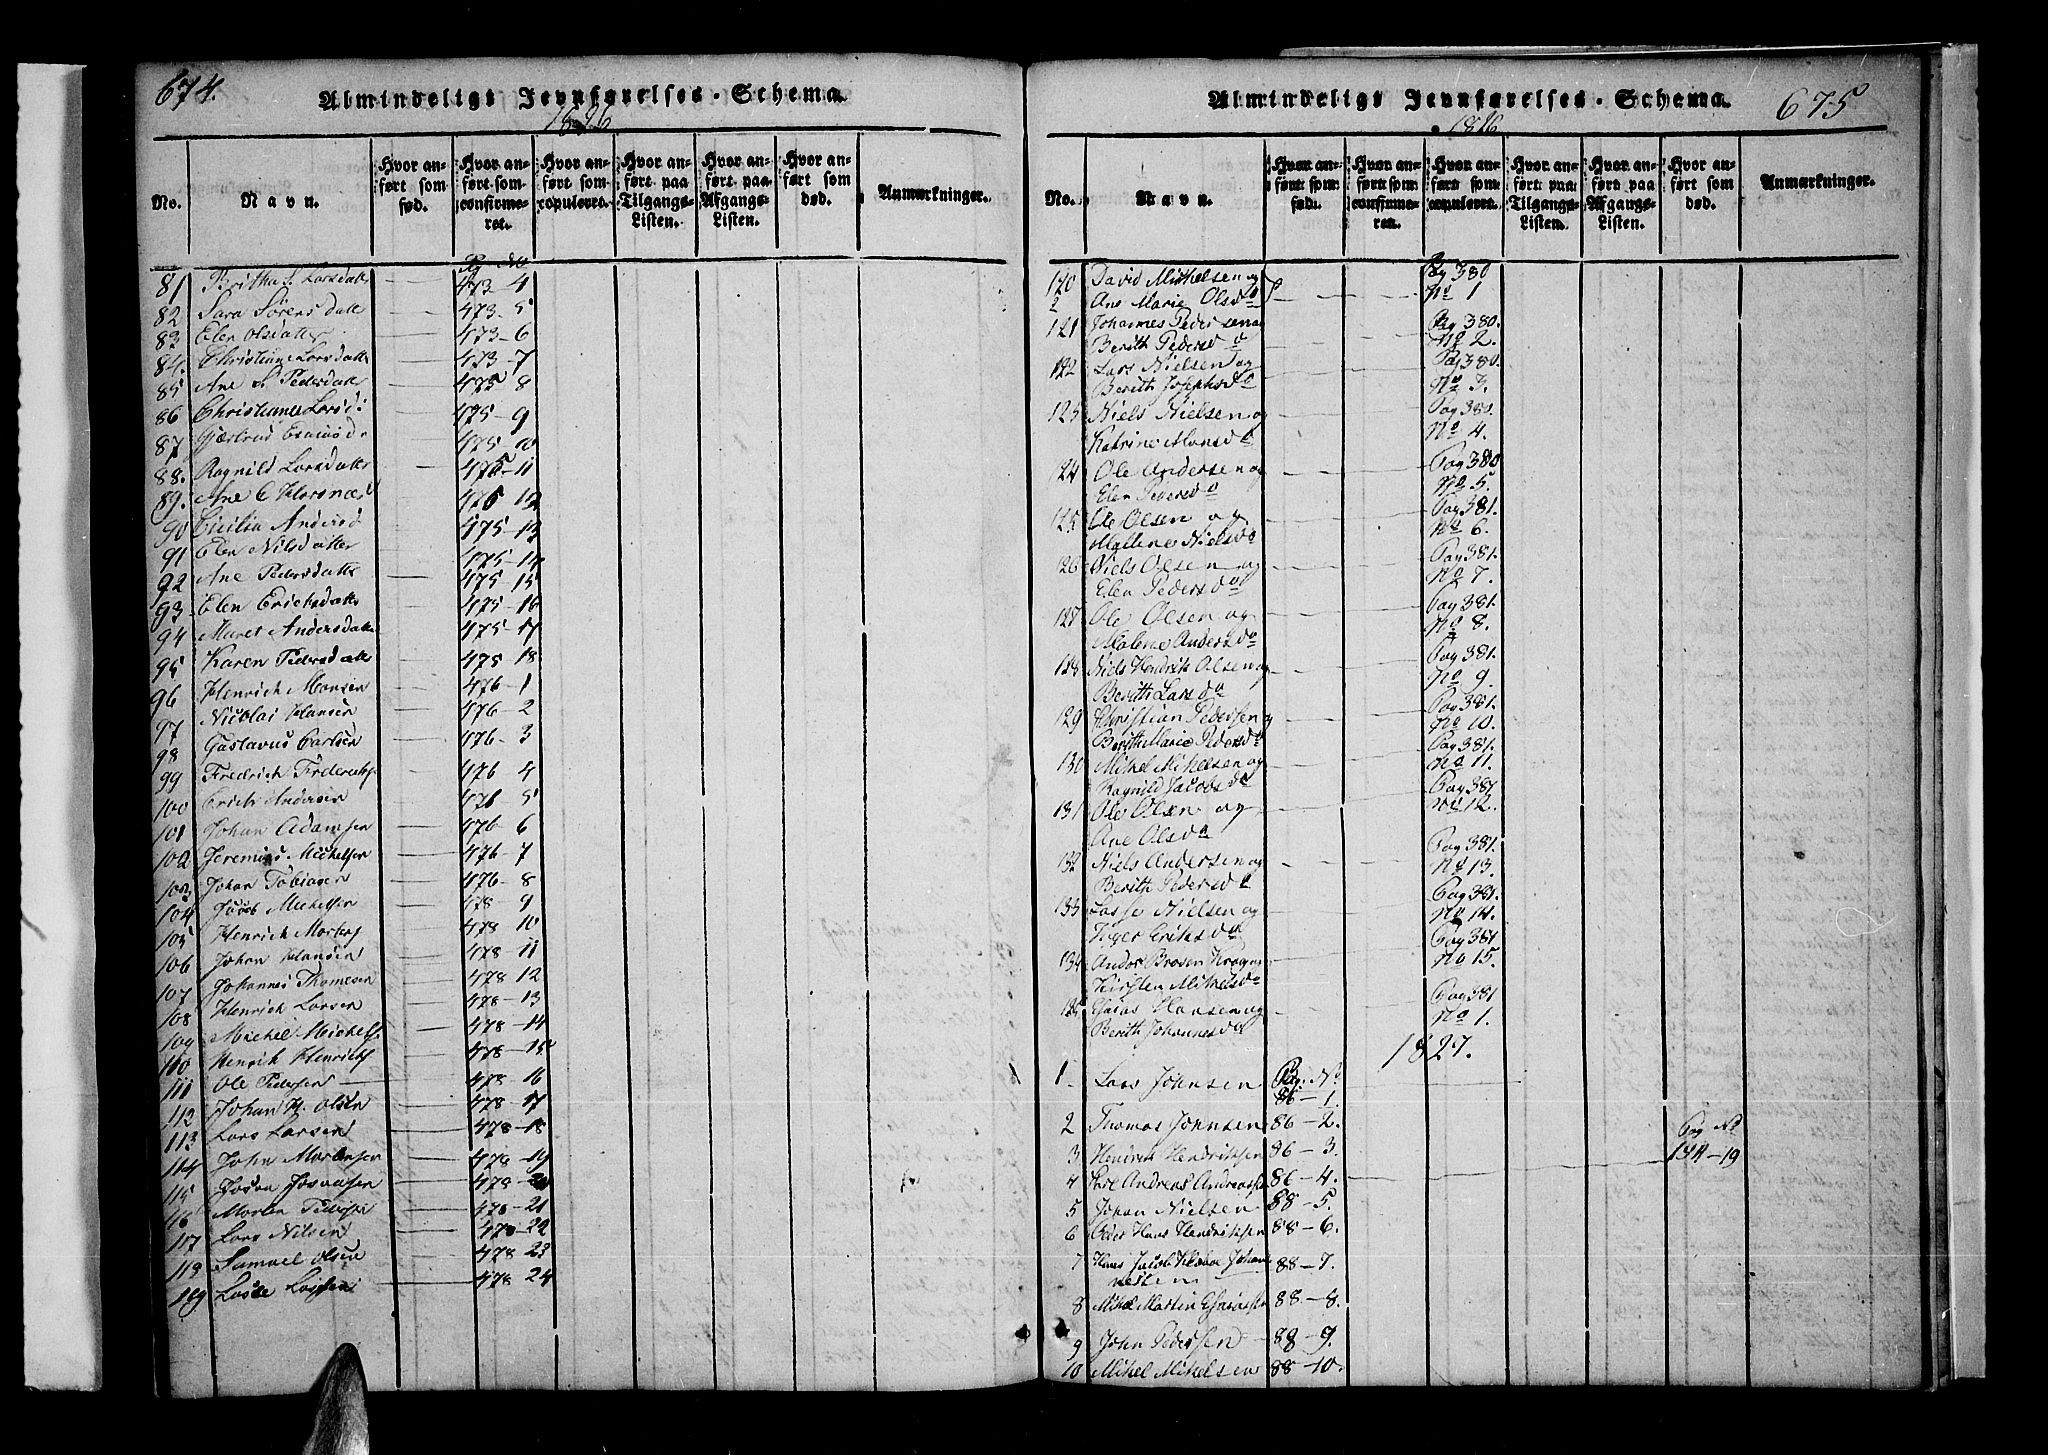 674.
Almindeligt Jevnførelses-Schema.
1826
No.
Navn.
Hvor anført som fød.
Hvor anført som confirmeret.
Hvor anført som copuleret.
Hvor anført paa Tilgangs-Listen.
Hvor anført paa Afgangs-Listen.
Hvor anført som død.
Anmærkninger.
Pg No
81 Britha S. Larsdatter 473-4
82 Sara Sørensdatt 473-5
83 Elen Olsdatter 473-6
84. Christiane Larsdatt 473-7
85 Ane S Pedersdatt 475 8
86 Christianne Larsd: 475-9
87 Gjertrud 475-10
88. Ragnild Larsdatter 475-11
89. Ane C 475 12
90 Cicilia Andersd 475-13
91 Elen Nilsdatter 475-14
92 Ane Pedersdatt 475 15
93 Elen Erichsdatt 475-16
94 Maret Andersdatt 475-17
95 Karen Pedersdatt 475 18
96 Henrich Monsen 476-1
97 Nicolai Hansen 476-2
98 Gustavus Carlsen 476-3
99 Fredrich 476 4
100 Erich Andersen 476 5
101 Johan Adamsen 476 6
102 Jeremias Michelsen 476-7
103 Johan Tobiasen 476-8
104 Jacob Michelsen 478 9
105 Henrich 478 10
106 Johan Hansen 478 11
107 Johannes Thomesen 478 12
108 Henrich Larsen 478-13
109 Michel Michels 478-14
110 Henrich Henrichs 478-15
111 Ole Pedersen 478-16
112 Johan H. Olsen 478-17
113 Lars Larsen 478-18
114 John Mortensen 478-19
115 478-20
116 Morten Peders 478-21
117 Lars Nilsen 478-22
118 Samuel Olsen 478 23
119 Lasse 478 24
Almindeligt Jevnførelses-Schema.
675
1826
No.
Navn.
Hvor anført som fød.
Hvor anført som confirmeret.
Hvor anført som copuleret.
Hvor anført paa Tilgangs-Listen.
Hvor anført paa Afgangs-Listen.
Hvor anført som død.
Anmærkninger.
120 David Mikkelsen og Pag 380
Ane Marie Olsda No 1
121 Johannes Pedersen og Pag 380.
Berith Pedersda No 2.
122 Lars Nielsen og Pag 380
Berith Josephsda No 3.
123 Niels Nielsen og Pag 380.
Katrine Monsda No 4.
124 Ole Andersen og Pag 380
Elen Pedersda No 5.
125 Ole Olsen og Pag 381.
Mallene Nielsda No 6.
126 Niels Olsen og Pag 381.
Elen Pedersda No 7.
127 Ole Olsen og Pag 381.
Malene Andersda No 8.
128 Niels Hendrik Olsen og Pag 381.
Berith Larsda No 9.
129 Christian Pedersen og Pag 381.
Berith Marie Pedersda No 10.
130 Mikel Mikelsen og Pag 381.
Ragnild Jacobsda No 11.
131 Ole Olsen og Pag 381
Ane Olsda No 12.
132 Niels Andersen og Pag 381.
Berith Pedersda No 13.
133 Lasse Nielsen og Pag 381.
Inger Eriksda No 14.
134 Andor Brosen Krog og Pag 381
Kirsten Mikelsda No 15.
135 Esaias Hansen og Pag 381
Berith Johannesda No 1.
1827.
1. Lars Johnsen Pag. No 86-1.
2 Thomas Johnsen 86-2.
3 Hendrik Hendriksen 86-3. Pag No 144-19
4 Andreas Andreassen 86-4.
5 Johan Nielsen 88-5.
6 Peder Hans Hendriksen 88-6.
7 Hans Jacob Johan
nessen 88-7.
8 Mikel Martin Esaiassen 88-8.
9 John Pedersen 88-9.
10 Mikel Mikelsen 88-10.